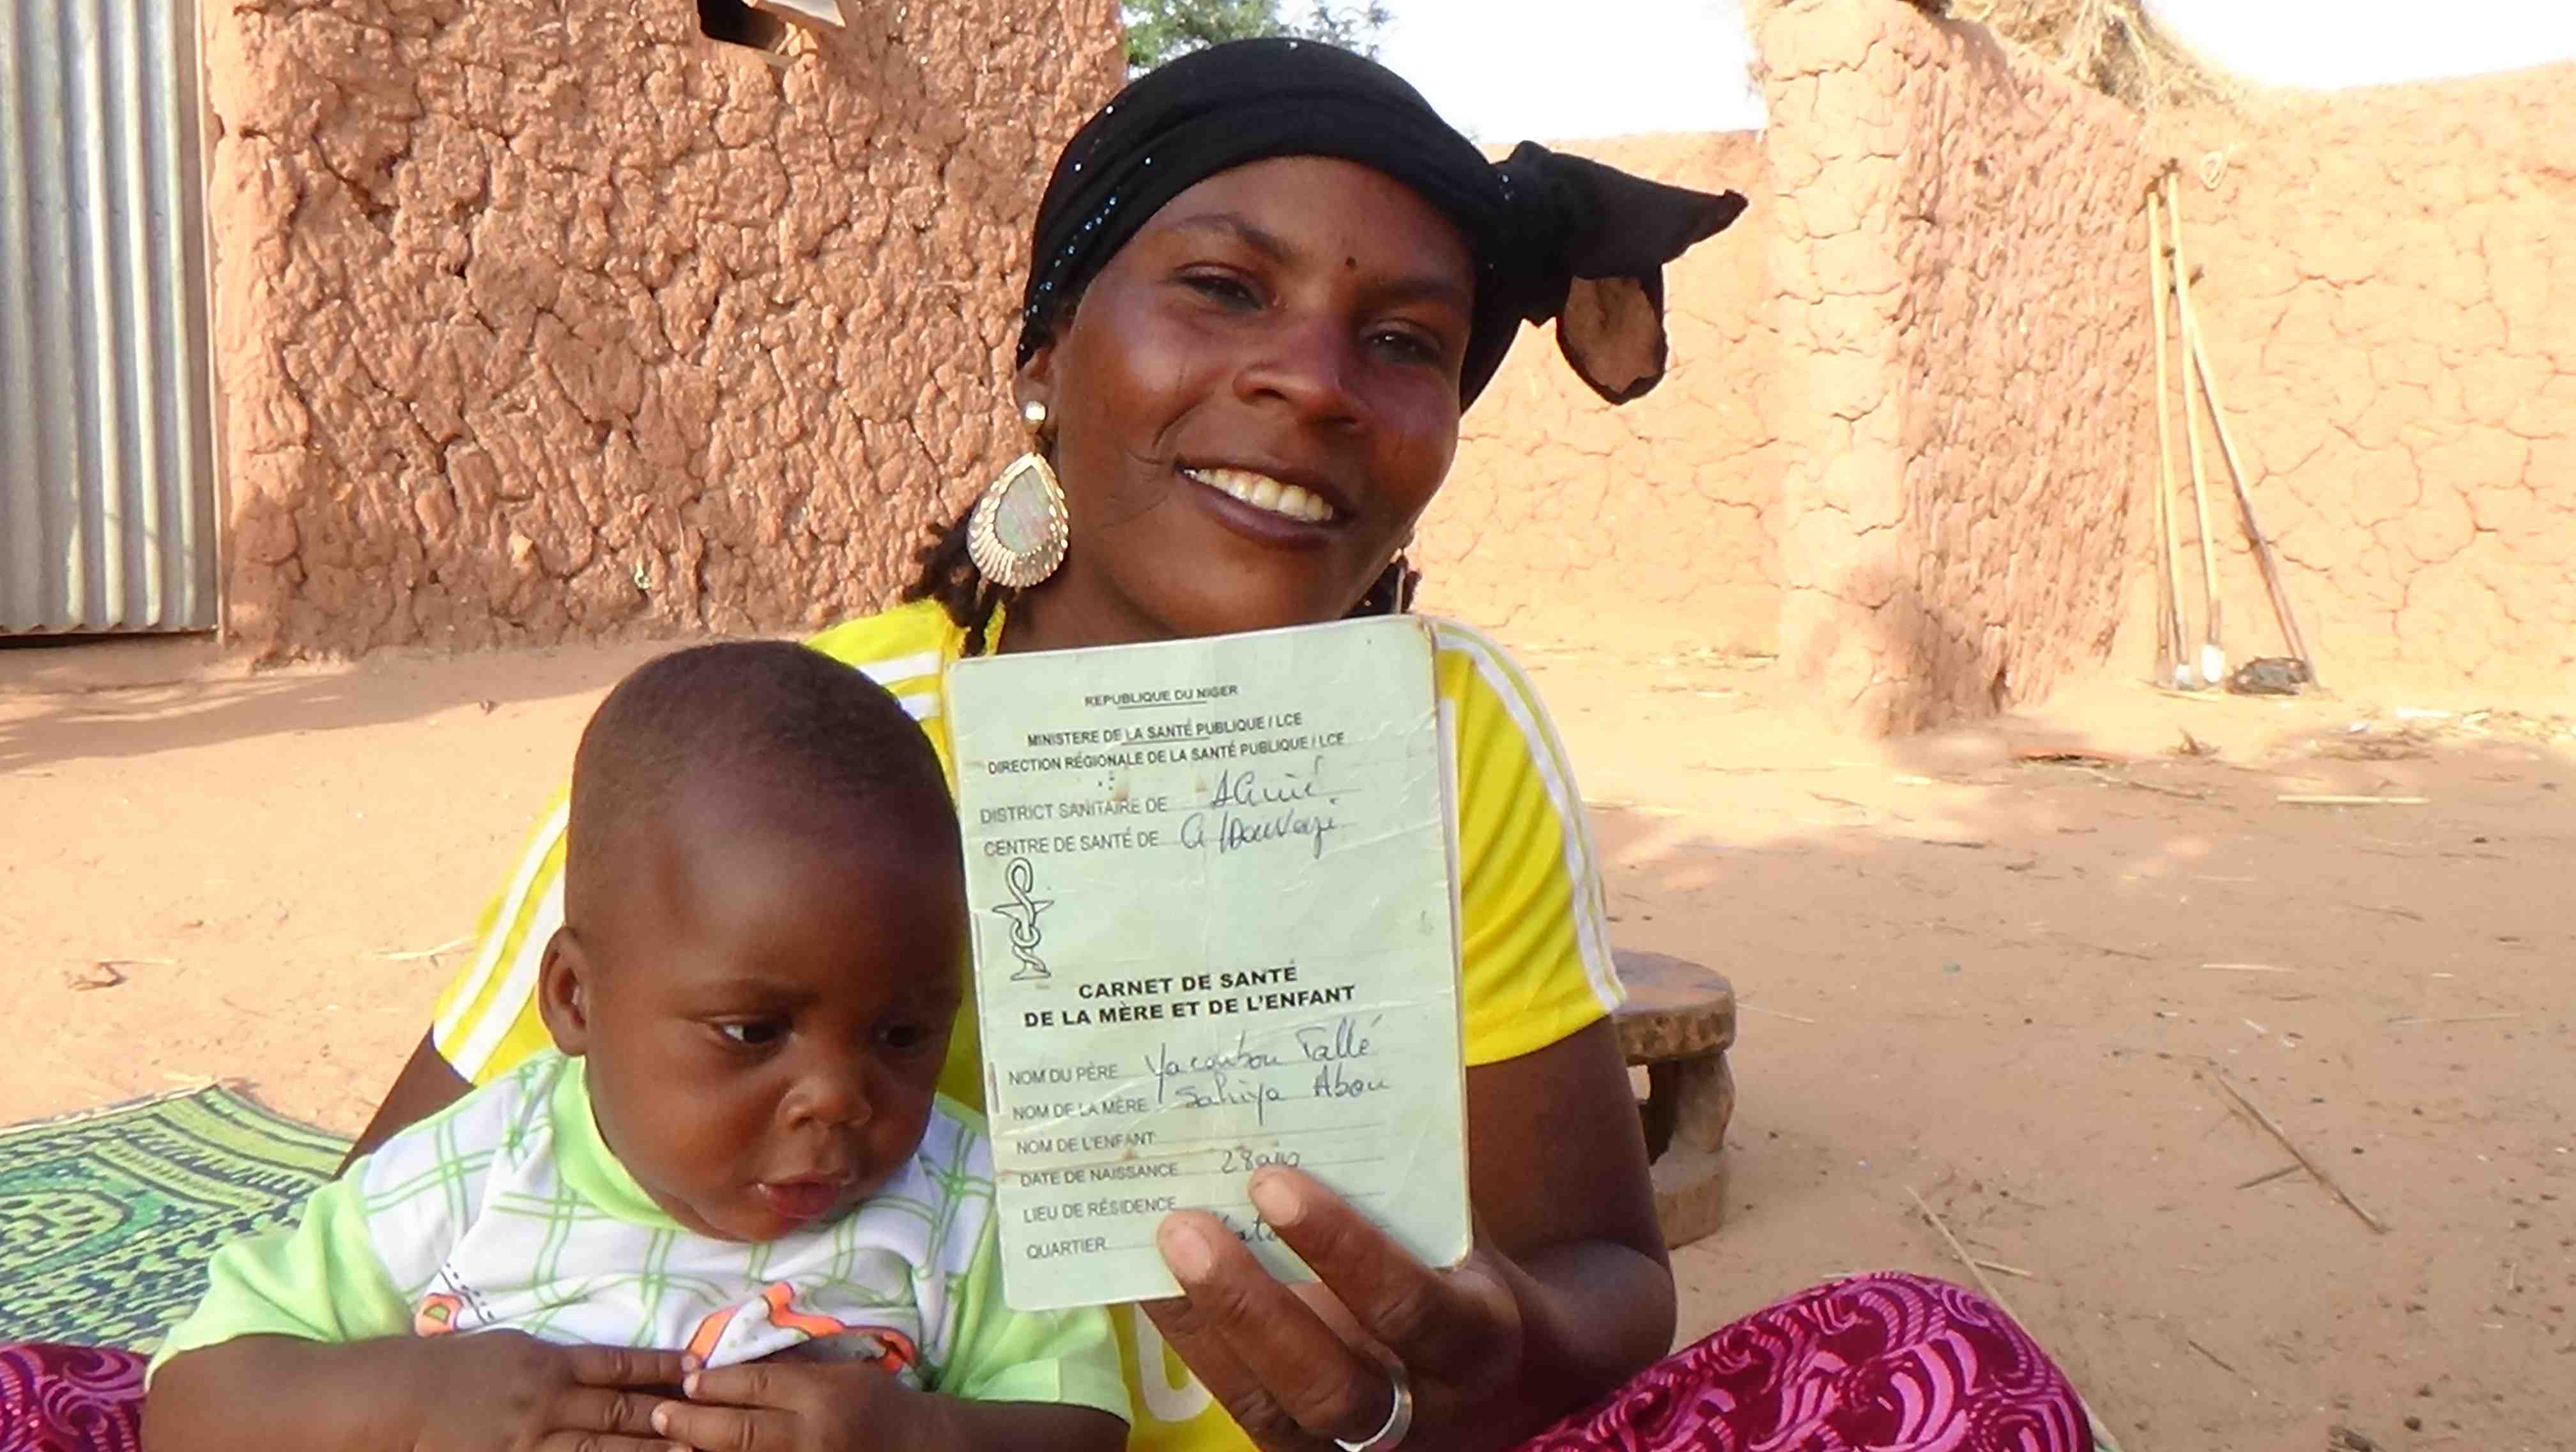 REPUBLIQUE DU NIGER
MINISTERE DE LA SANTÉ PUBLIQUE / LCE
DIRECTION RÉGIONALE DE LA SANTÉ PUBLIQUE / LCE
DISTRICT SANITAIRE DE Aguié
CENTRE DE SANTÉ DE
CARNET DE SANTÉ
DE LA MÈRE ET DE L'ENFANT
NOM DU PÈRE Yacoubou Tallé
NOM DE LA MÈRE Sahiya Abou
NOM DE L'ENFANT
DATE DE NAISSANCE 28 ans
LIEU DE RÉSIDENCE
QUARTIER